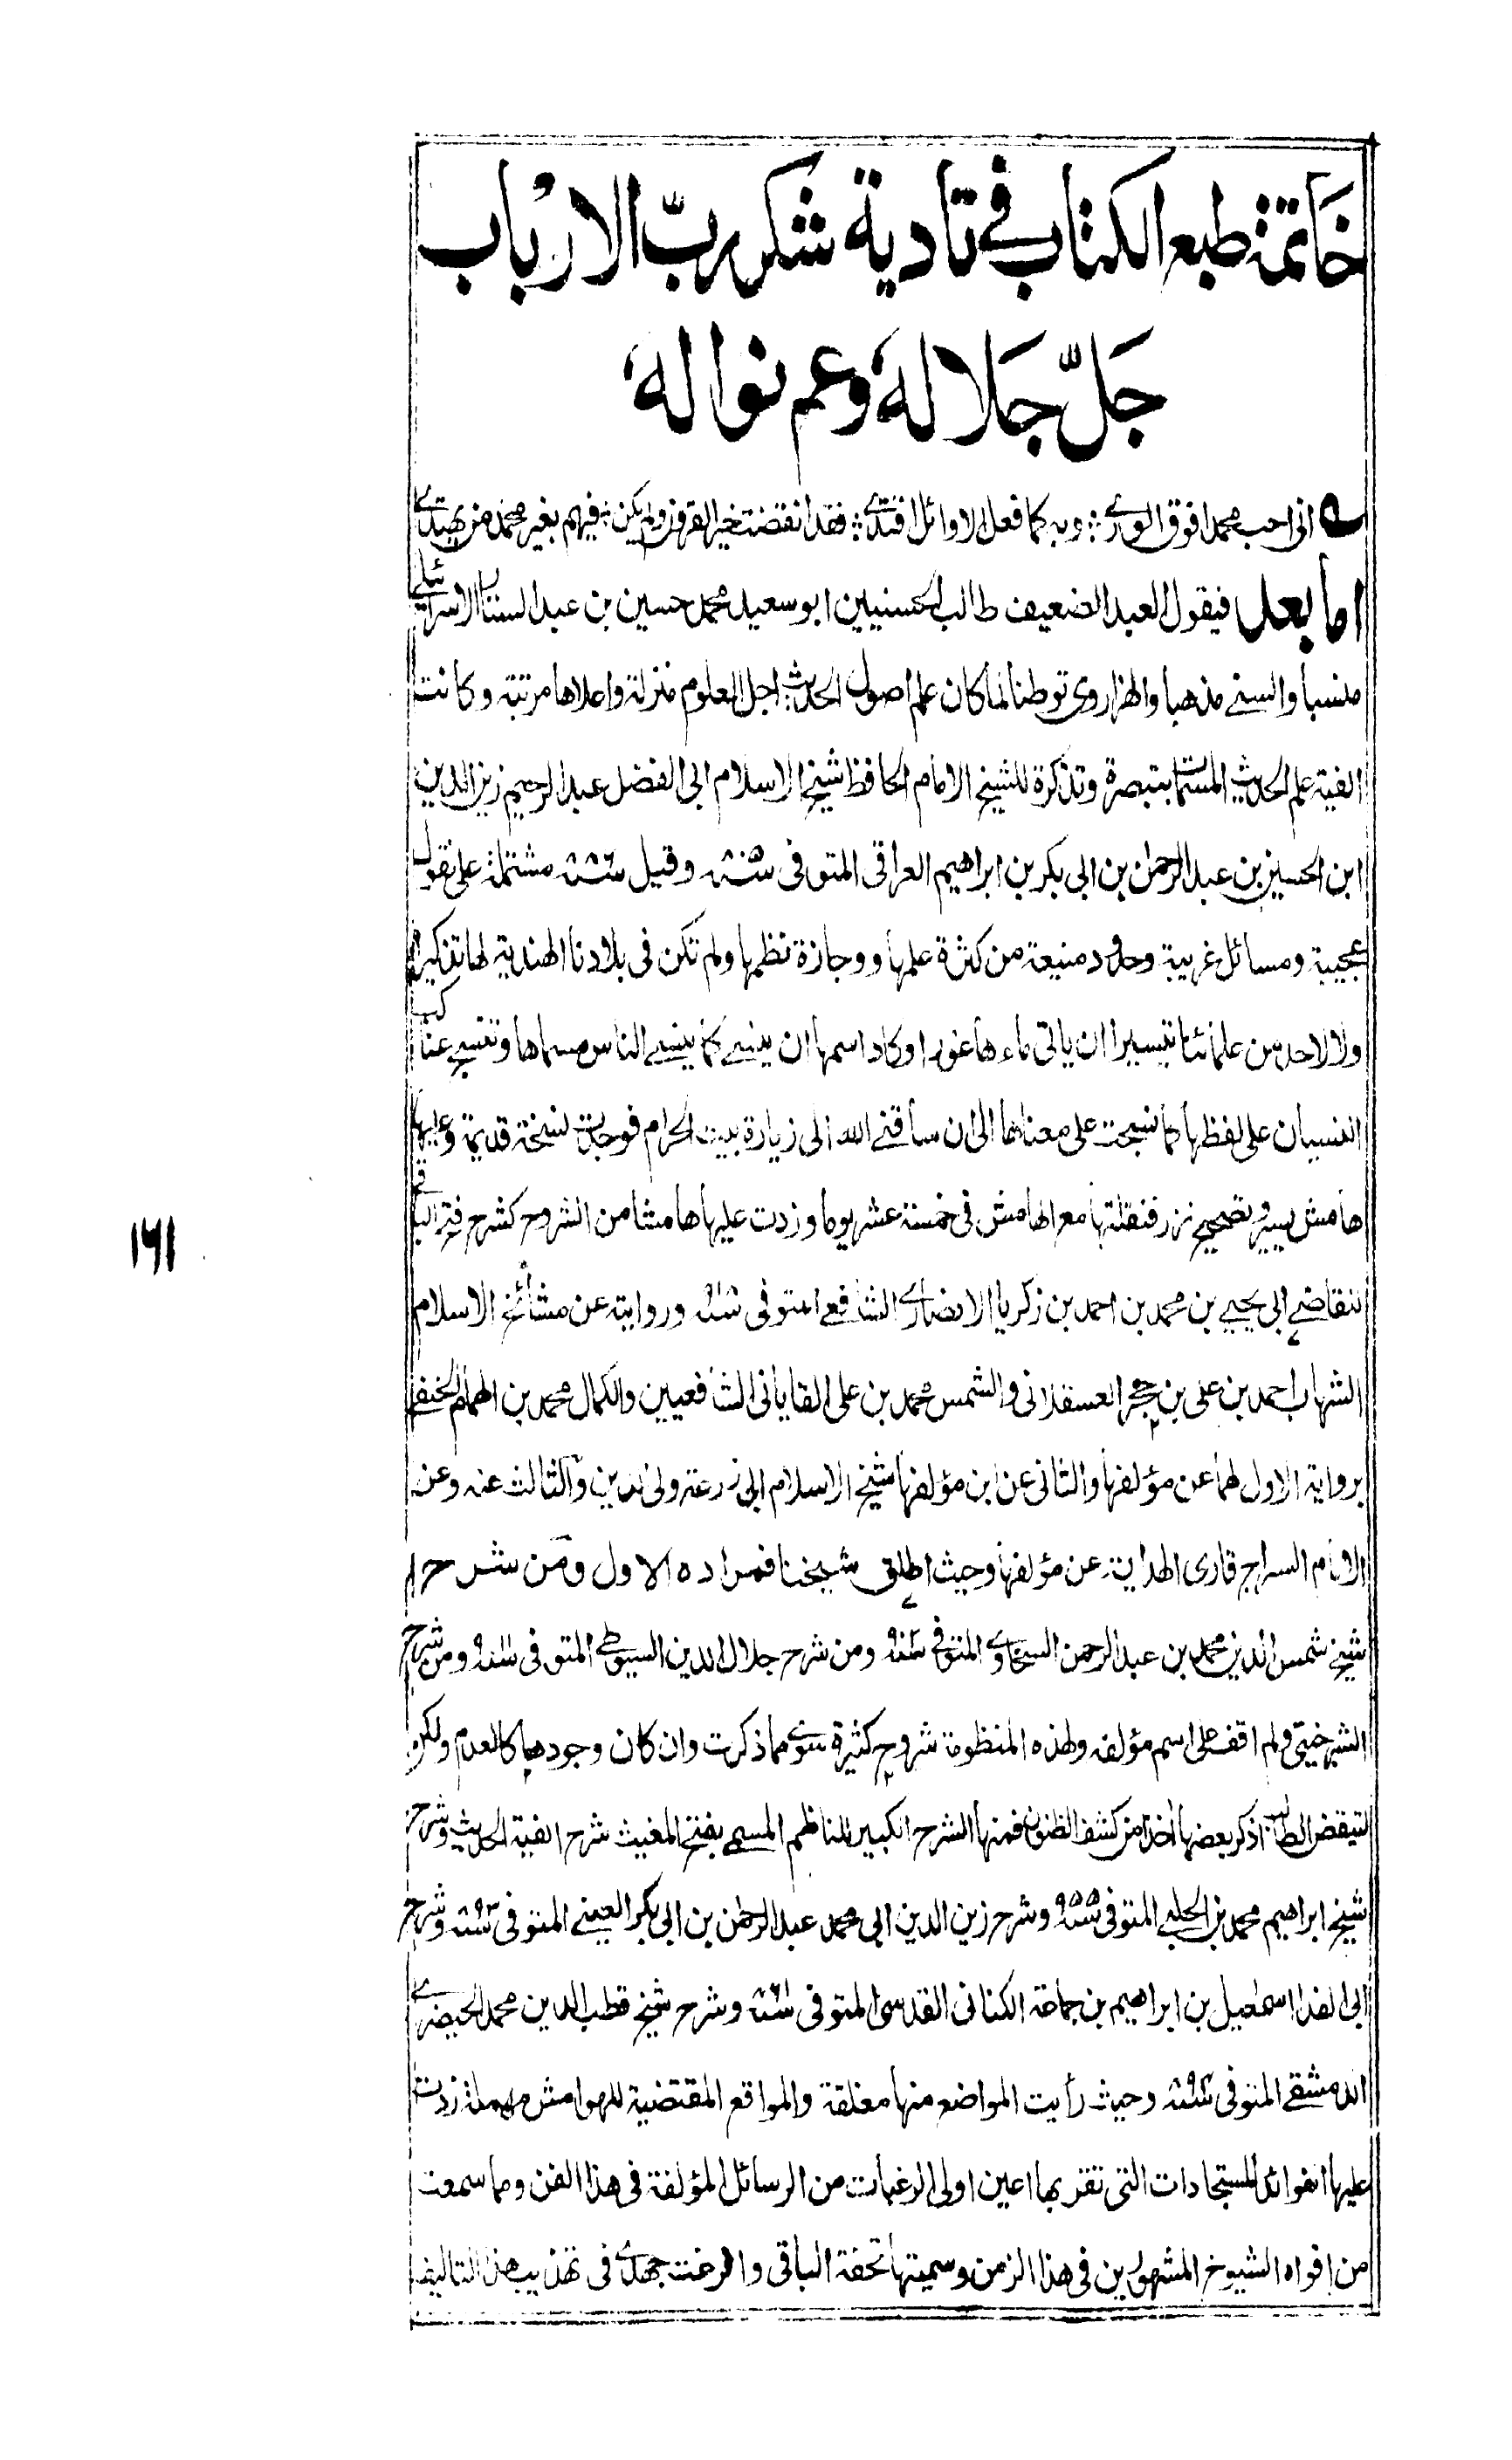 خاتمة طبع الكتاب في تادية شكر ربّ الارباب
جَلّ جَلاله وعم نواله
انى احب محمدا فوق الورے ؛ وبه كما فعل الاوائل اقتدے ؛ فقد انقضت خير القرون ولم يكن ؛ فيهم بغير محمد من يهتدے
اما بعد فيقول العبد الضعيف طالب الحسنيين ابو سعيد محمد حسين بن عبد الستار الاسرائيلے
منسبا والسنے مذهبا والهزاروى توطنا لما كان علم اصول الحديث اجل العلوم منزلة واعلاها مرتبة وكانت
الفية علم الحديث المسماة بتبصرة وتذكرة للشيخ الامام الحافظ شيخ الاسلام ابى الفضل عبد الرحيم زين الدين
ابن الحسين بن عبد الرحمان بن ابى بكر بن ابراهيم العراقى المتوفى وقيل مشتملة على نقول
عجيبة ومسائل غريبة وحدود منيعة من كثرة علمها ووجازة نظمها ولم تكن فى بلادنا الهندية لها تذكيرا
ولا لاحد من علمائنا تيسيرا ان ياتى ماءها غورا وكاد اسمها ان ينسے كما ينسے الناس مسماها وتنسج عناكب
النسيان على لفظها كما نسجت على معناها الى ان ساقنے الله الى زيارة بيت الحرام فوجدت نسخة قديمة وعليها
هامش يسير وتصحيح نزر فنقلتها مع الهامش فى خمسة عشر يوما وزدت عليها هامشا من الشروح كشرح فتح الباقے
للقاضے ابى يحيے بن محمد بن احمد بن زكريا الانصارے الشافعے المتوفى وروايته عن مشائخ الاسلام
الشهاب احمد بن على بن حجر العسقلانى والشمس محمد بن على القاياتى الشافعيين والكمال محمد بن الهمام الحنفے
برواية الاول لها عن مؤلفها والثانى عن ابن مؤلفها شيخ الاسلام ابى زرعة ولى الدين والثالث عنه وعن
الامام السراج قارى الهداية عن مؤلفها وحيث اطلق شيخنا فمراده الاول ومن شرح
شيخ شمس الدين محمد بن عبد الرحمن السخاوے المتوفى ومن شرح جلال الدين السيوطے المتوفى ومن شرح
الشيرخيتى ولم اقف على اسم مؤلفه ولهذه المنظومة شروح كثيرة سوے ما ذكرت وان كان وجودها كالعدم ولكن
لتيقض الطالب اذكر بعضها اخذا من كشف الظنون فمنها الشرح الكبير للناظم المسمے بفتح المغيث شرح الفية الحديث وشرح
شيخ ابراهيم محمد بن الحلبے المتوفى وشرح زين الدين ابى محمد عبد الرحمن بن ابى بكر العينے المتوفى وشرح
ابى الفدا اسمعيل بن ابراهيم بن جماعة الكنانى القدسى المتوفى وشرح شيخ قطب الدين محمد الخيضرے
الدمشقے المتوفى وحيث رأيت المواضع منها مغلقة والمواقع المقتضية للهوامش مهملة زدت
عليها الفوائد المستجادات التى تقر بها اعين اولى الرغبات من الرسائل المؤلفة فى هذا الفن ومما سمعت
من افواه الشيوخ المشهورين فى هذا الزمن وسميتها تحفة الباقى وافرغت جهدے فى تهذيب هذا التاليف
١٦١